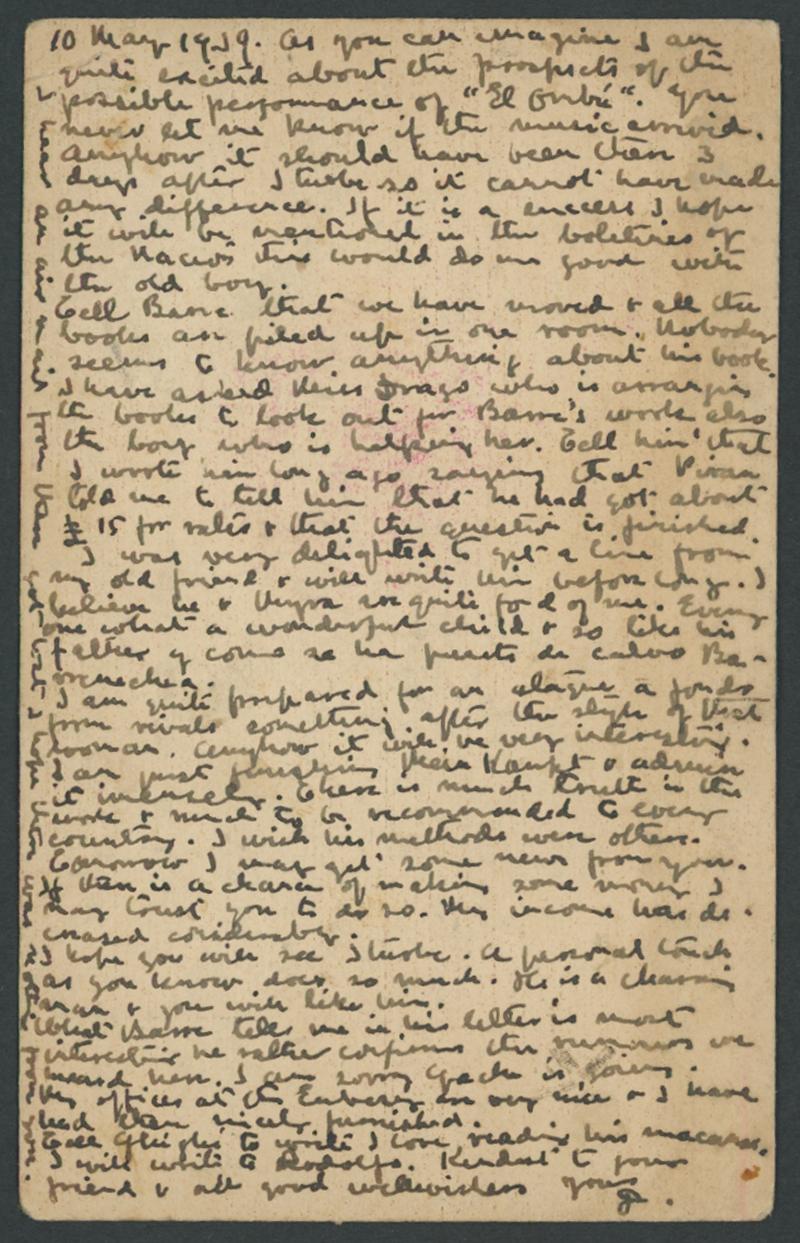 10 May 1939. As you can imagine I am
quite excited about the prospects of the
possible performance of "El Ombú". You
never let me know if the music arrived.
Anyhow it should have been there 3
days after I so it cannot have made
any difference. If it is a success I hope
it will be mentioned in the of
the this would do me good with
the old boy.
Tell Barre that we have moved & all the
books are piled up in one room. Nobody
seems to know anything about his book.
I have asked Drago who is arranging
the books to look out for Barre's work also
the boy who is helping her. Tell him that
I wrote him long ago saying that
told me to tell him that he had got about
15 for & that the question is finished.
I was very delighted to get a line from
my old friend & will write him before long. I
believe he & are quite fond of me. Every
one what a wonderful child & so like his
father y como se ha de calvo Ba-
rrenechea.
I am quite prepared for an à fonds
from rivals something after the style of that
woman. Anyhow it will be very interesting.
I am just finishing Mein Kampf & admire
it immensely. There is much truth in the
work & much to be recommended to every
country. I wish his methods were other.
Tomorrow I may get some news from you.
If there is a chance of making some money I
may trust you to do so. My income has de-
creased considerably.
I hope you will see A personal touch
as you know does so much. He is a charming
man & you will like him.
What Barre tells me in his letter is most
interesting he rather confirms the rumours we
heard here. I am sorry is going.
My offices at the Embassy are very nice & I have
had them nicely furnished.
Tell to write I love reading his
I will write to Rodolfo. Kindest to your
friend & all good wellwishers yours
I hear an air mail from there got lost I hope there was nothing from you.